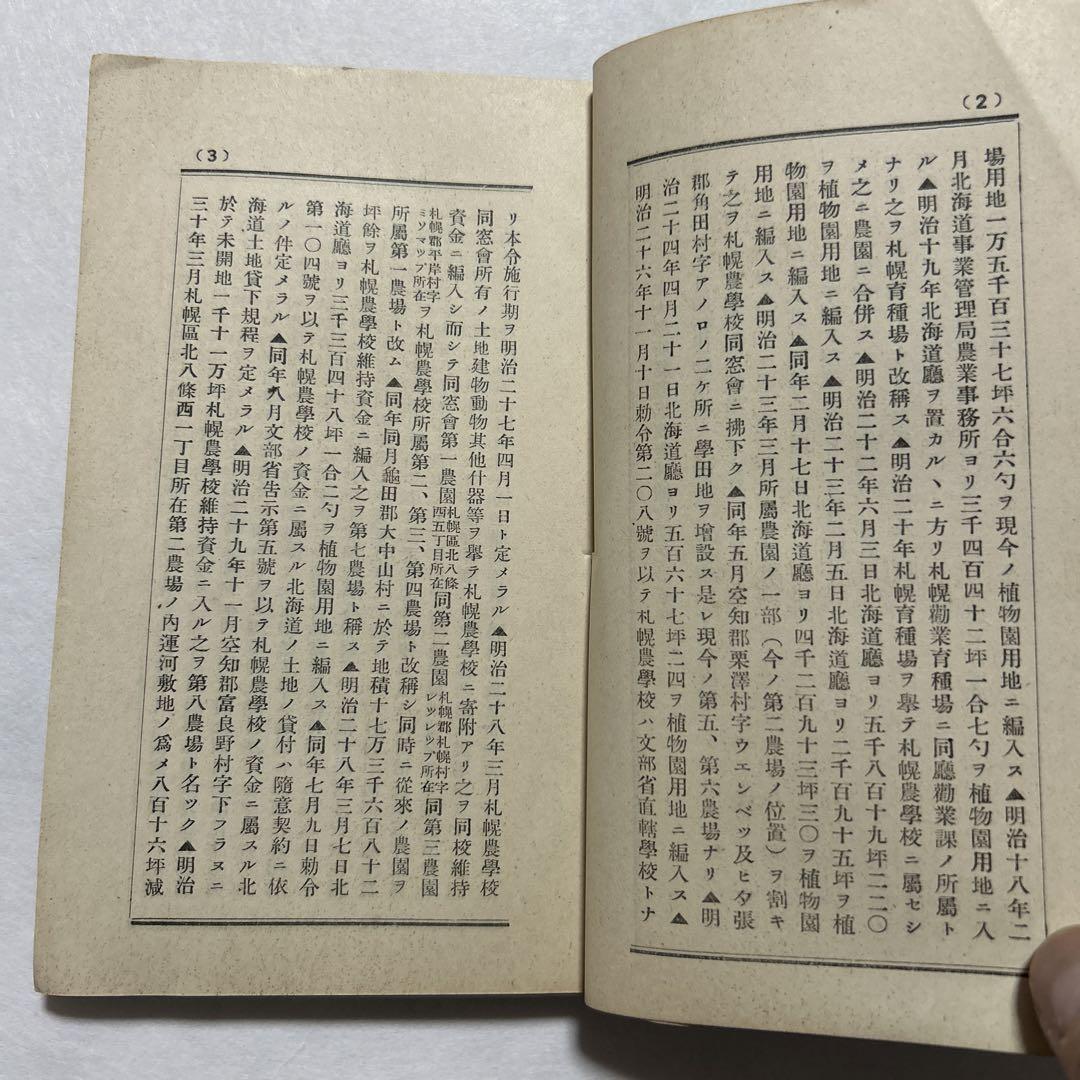 (2)
場用地一万五千百三十七坪六合六勺ヲ現今ノ植物園用地ニ編入ス▲明治十八年二
月北海道事業管理局農業事務所ヨリ三千四百四十二坪一合七勺ヲ植物園用地ニ入
ル▲明治十九年北海道廳ヲ置カルヽニ方リ札幌勸業育種場ニ同廳勸業課ノ所屬ト
ナリ之ヲ札幌育種場ト改稱ス▲明治二十年札幌育種場ヲ擧テ札幌農學校ニ屬セシ
メ之ニ農園ニ合併ス▲明治二十二年六月三日北海道廳ヨリ五千八百十九坪二二〇
ヲ植物園用地ニ編入ス▲明治二十三年二月五日北海道廳ヨリ二千百九十五坪ヲ植
物園用地ニ編入ス▲同年二月十七日北海道廳ヨリ四千二百九十三坪三〇ヲ植物園
用地ニ編入ス▲明治二十三年三月所屬農園ノ一部(今ノ第二農場ノ位置)ヲ割キ
テ之ヲ札幌農學校同窓會ニ拂下ク▲同年五月空知郡栗澤村字ウエンベツ及ヒ夕張
郡角田村字アノロノ二ケ所ニ學田地ヲ增設ス是レ現今ノ第五、第六農場ナリ▲明
治二十四年四月二十一日北海道廳ヨリ五百六十七坪二四ヲ植物園用地ニ編入ス▲
明治二十六年十一月十日勅令第二〇八號ヲ以テ札幌農學校ハ文部省直轄學校トナ
(3)
リ本令施行期ヲ明治二十七年四月一日ト定メラル▲明治二十八年三月札幌農學校
同窓會所有ノ土地建物動物其他什器等ヲ擧テ札幌農學校ニ寄附アリ之ヲ同校維持
資金ニ編入シ而シテ同窓會第一農園札幌區北八條西五丁目所在同第二農園札幌郡札幌村字レツレツプ所在同第三農園
札幌郡平岸村字ミソマツプ所在ヲ札幌農學校所屬第二、第三、第四農場ト改稱シ同時ニ從來ノ農園ヲ
所屬第一農場ト改ム▲同年同月龜田郡大中山村ニ於テ地積十七万三千六百八十二
坪餘ヲ札幌農學校維持資金ニ編入之ヲ第七農場ト稱ス▲明治二十八年三月七日北
海道廳ヨリ三千三百四十八坪一合二勺ヲ植物園用地ニ編入ス▲同年七月九日勅令
第一〇四號ヲ以テ札幌農學校ノ資金ニ屬スル北海道ノ土地ノ貸付ハ隨意契約ニ依
ルノ件定メラル▲同年八月文部省告示第五號ヲ以テ札幌農學校ノ資金ニ屬スル北
海道土地貸下規程ヲ定メラル▲明治二十九年十一月空知郡富良野村字下フラヌニ
於テ未開地一千十一万坪札幌農學校維持資金ニ入ル之ヲ第八農場ト名ツク▲明治
三十年三月札幌區北八條西一丁目所在第二農場ノ內運河敷地ノ爲メ八百十六坪減